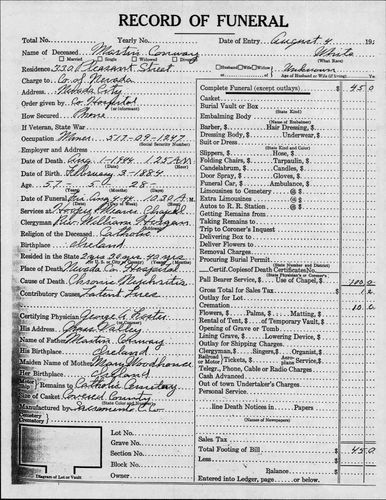 RECORD OF FUNERAL
Total No. Yearly No. Date of Entry August 4 19
Name of Deceased Martin Conway White
Married Single Widowed Divorced (What Race)
Residence 330 Pleasant Street Husband Wife Widow of Unknown
Age of Husband or Wife (if living) Yrs.
Charge to Co. of Nevada
Address Nevada City
Order given by Co. Hospital
How Secured Phone
If Veteran, State War
Occupation Miner 517-09-1247
(Social Security Number)
Employer and Address
Date of Death Aug. 1-1944 1:25 A.M.
Date of Birth February 3-1884
Age 57 - 5 - 28 -
(Years) (Months) (Days)
Date of Funeral Fri. Aug 4-44 10:30 A.M.
Services at Chapel
Clergyman Rev. William Horgan
Religion of the Deceased Catholic
Birthplace Ireland
Resided in the State
Place of Death Nevada Co. Hospital
Cause of Death Chronic Nephritis
Contributory Causes
Certifying Physician George A. Foster
His Address Grass Valley
Name of Father Martin Conway
His Birthplace Ireland
Maiden Name of Mother Mary Woodhouse
Her Birthplace England
Motor Remains to Catholic Cemetery
Size of Casket Covered County
(State Color and Number)
Manufactured by Sacramento C. Co.
Diagram of Lot or Vault
Lot No.
Grave No.
Section No.
Block No.
Owner
Complete Funeral (except outlays) $ 45 0
Casket
Burial Vault or Box
(State Kind)
Embalming Body
(Name of Embalmer)
Barber, $ Hair Dressing, $
Dressing Body, $ Underwear, $
Suit or Dress
(State Kind and Color)
Slippers, $ Hose, $
Folding Chairs, $ Tarpaulin, $
Candelabrum, $ Candles, $
Door Spray, $ Gloves, $
Funeral Car, $ Ambulance, $
Limousines to Cemetery @ $
Extra Limousines @ $
Autos to R. R. Station @ $
Getting Remains from
Taking Remains to
Trip to Coroner's Inquest
Delivering Box to
Deliver Flowers to
Removal Charges
Procuring Burial Permit
(State Number and District)
Certif. Copies of Death Certificates No.
(State Physician's or Coroner's)
Pall Bearer Service, $ Use of Chapel, $
Gross Total for Sales Tax $
Outlay for Lot
Cremation
Flowers, $ Palms, $ Matting, $
Rental of Tent, $ of Temporary Vault, $
Opening of Grave or Tomb
Lining Grave, $ Lowering Device, $
Outlay for Shipping Charges
Clergyman, $ Singers, $ Organist, $
Railroad or Motor Tickets, $ Aeroplane Service, $
Telegr., Phone, Cable or Radio Charges
Cash Advanced
Out of town Undertaker's Charges
Personal Service
line Death Notices in Papers
(Names of Newspapers)
Sales Tax
Total Footing of Bill $ 45 0
Less
Balance $
Entered into Ledger, page or below.